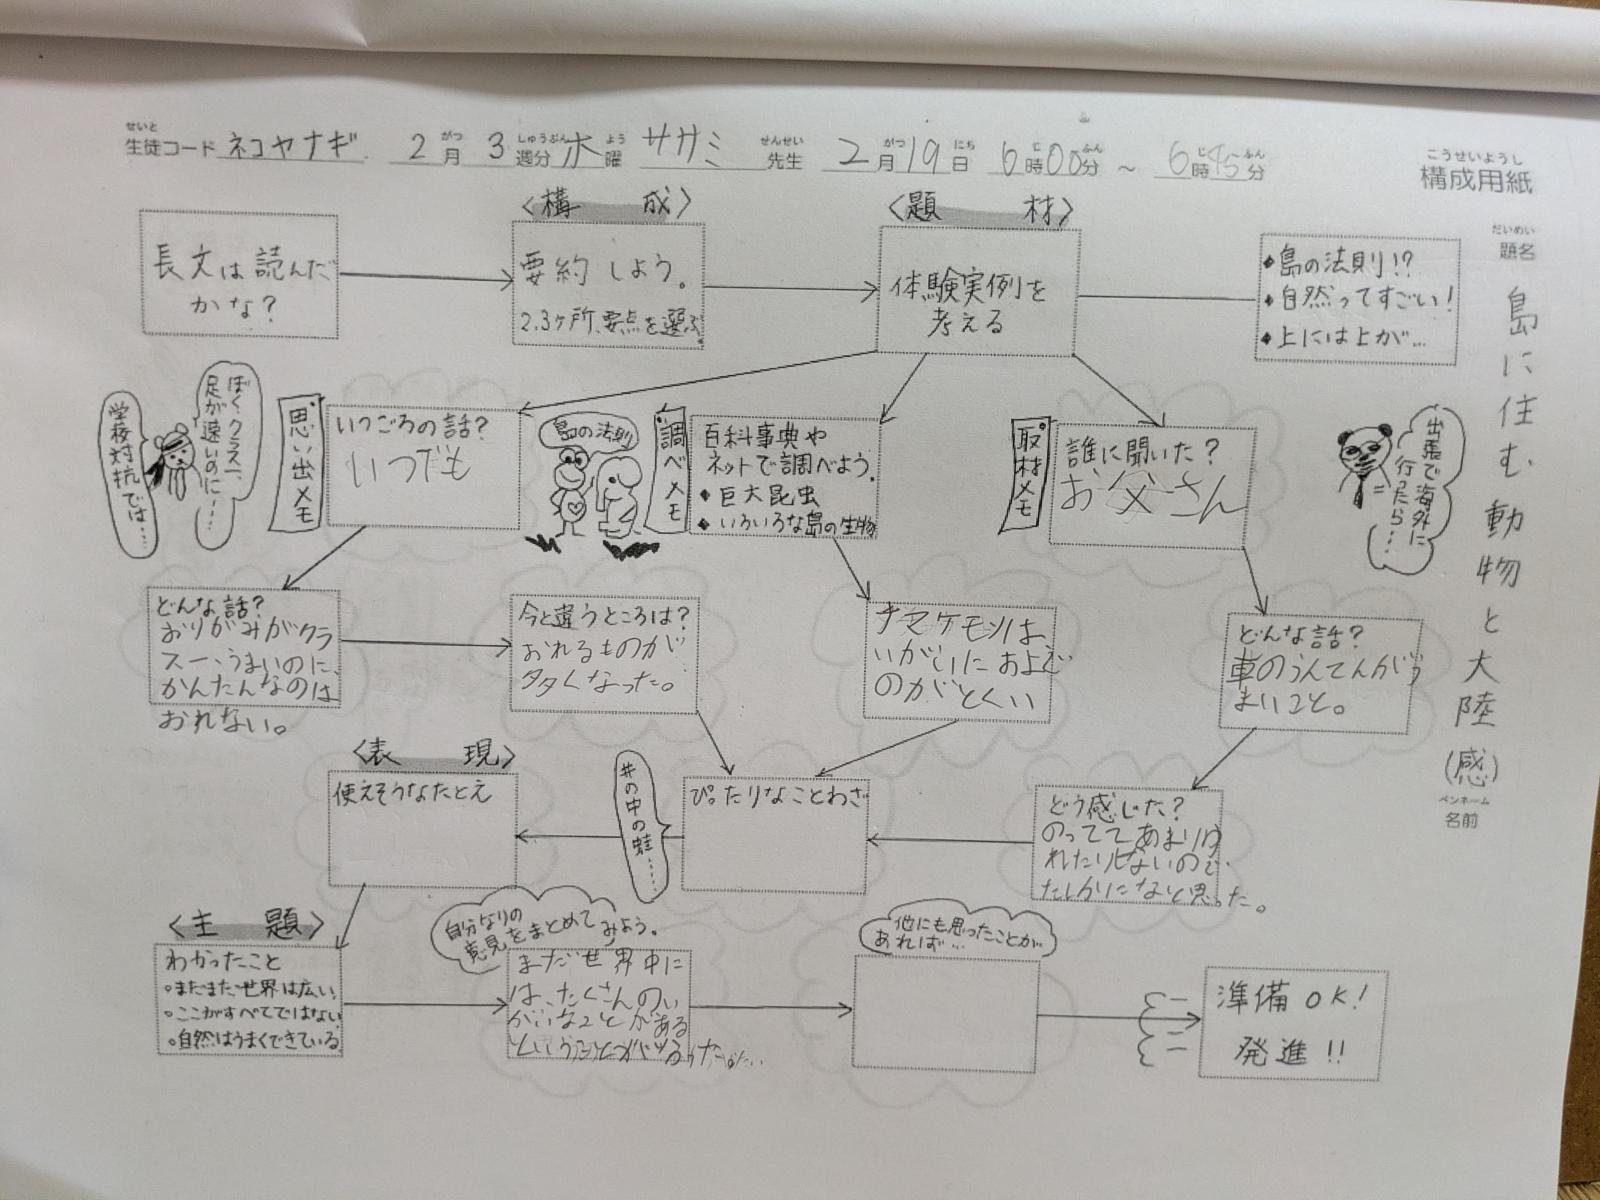 生徒コード ネコヤナギ 2月 3週分 木曜 ササミ 先生 2月19日 6時00分 ～ 6時45分
せいと がつ しゅうぶん よう せんせい がつ にち じ ふん じ ふん
こうせいようし
構成用紙
だいめい
題名
島に住む動物と大陸(感)
ペンネーム
名前
長文は読んだ
かな?
〈構 成〉
要約しよう。
2、3ヶ所、要点を選ぶ。
〈題 材〉
体験実例を
考える
◆島の法則!?
◆自然ってすごい!
◆上には上が…
学校対抗では…
ぼく、クラス一、
足が速いのに…
思い出メモ
いつごろの話?
いつでも
島の法則
調べメモ
百科事典や
ネットで調べよう。
◆巨大昆虫
◆いろいろな島の生物
取材メモ
誰に聞いた?
お父さん
出張で海外に
行ったら…
どんな話?
おりがみがクラ
スー、うまいのに、
かんたんなのは
おれない。
今と違うところは?
おれるものが
多くなった。
ナマケモノは
いがいにおよぐ
のがとくい
どんな話?
車のうんてんがう
まいこと。
〈表 現〉
使えそうなたとえ
井の中の蛙……
ぴったりなことわざ
どう感じた?
のっててあまりゆ
れたりしないので
たしかになと思った。
〈主 題〉
わかったこと
・まだまだ世界は広い
・ここがすべてではない
・自然はうまくできている
自分なりの
意見をまとめて
みよう。
まだ世界中に
は、たくさんのい
がいなことがある
ということがわかった
他にも思ったことが
あれば…
準備OK!
発進!!